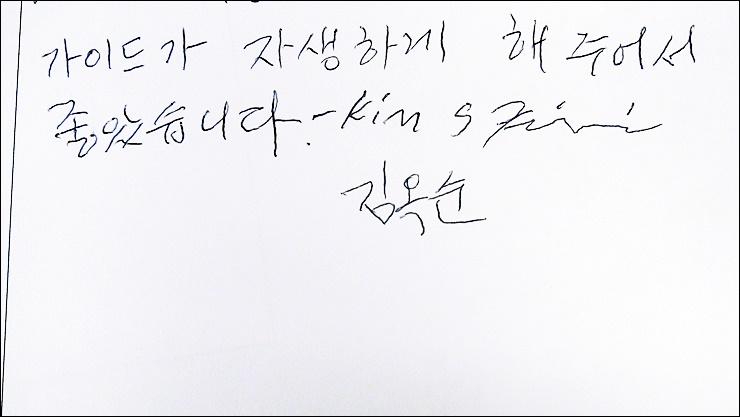 가이드가 자생하게 해 주어서
좋았습니다. - Kim S
김옥순